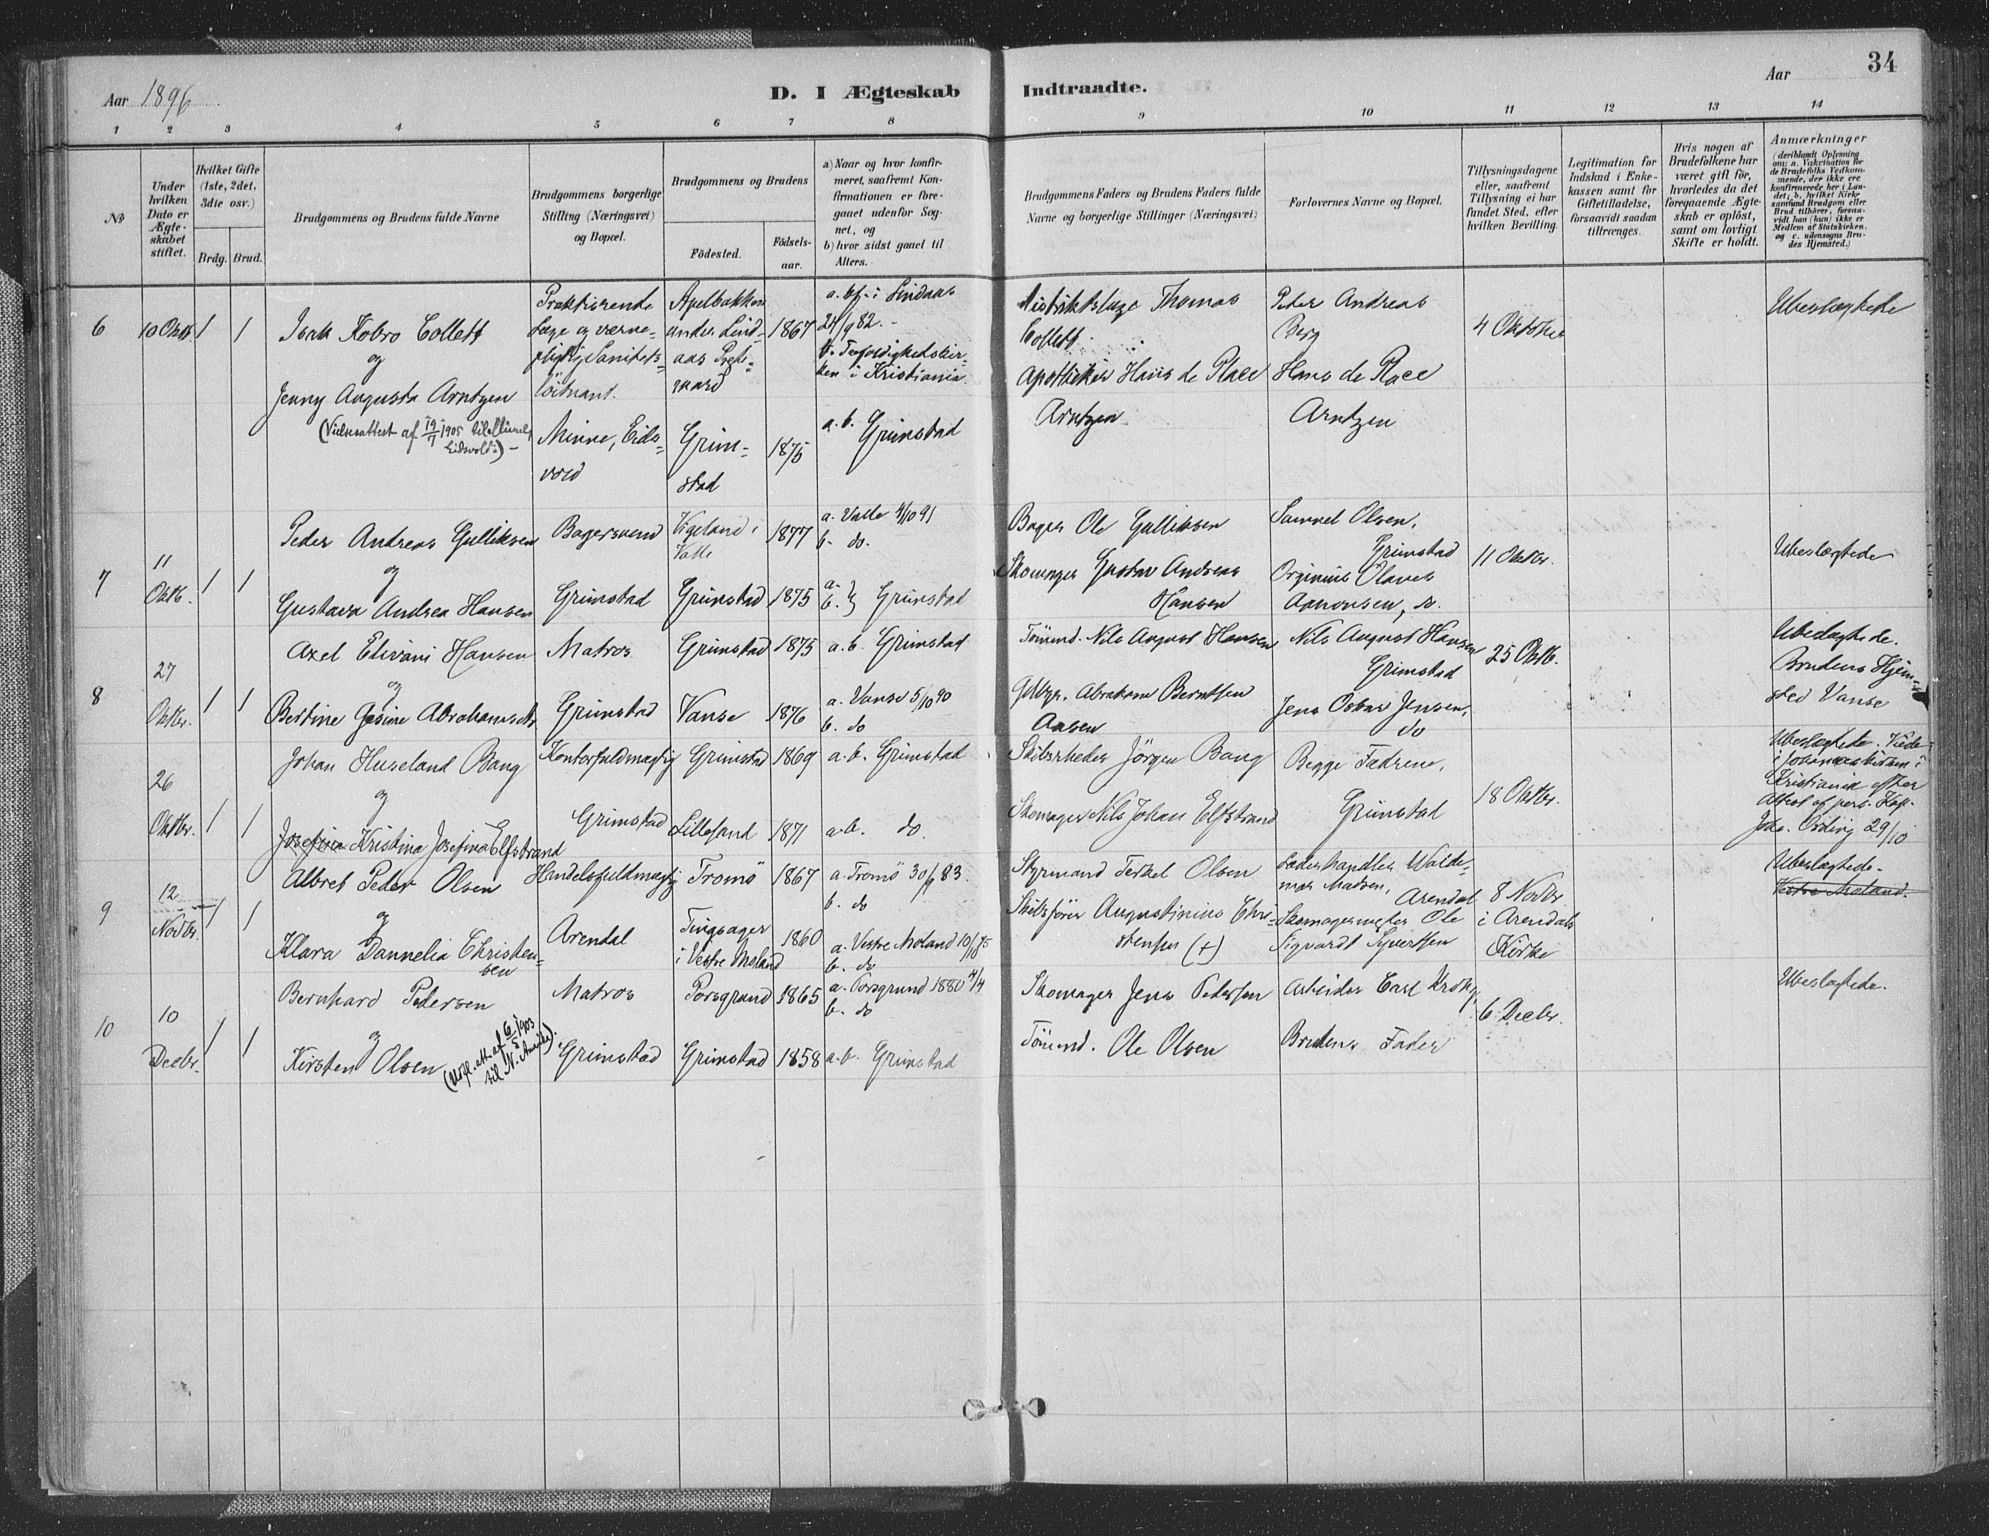 Aar 1896.
D. I Ægteskab
Indtraadte.
Aar
34
1 2 3 4 5 6 7 8 9 10 11 12 13 14
No
Under hvilken Dato er Ægteskabet stiftet.
Hvilket Gifte (1ste, 2det, 3die osv.)
Brdg. Brud.
Brudgommens og Brudens fulde Navne
Brudgommens borgerlige Stilling (Næringsvei) og Bopæl.
Brudgommens og Brudens
Fødested.
Fødselsaar.
a) Naar og hvor konfirmeret, saafremt Konfirmationen er foregaaet udenfor Sognet, og
b) hvor sidst gaaet til Alters.
Brudgommens Faders og Brudens Faders fulde Navne og borgerlige Stillinger (Næringsvei)
Forlovernes Navne og Bopæl.
Tillysningsdagene eller, saafremt Tillysning ei har fundet Sted, efter hvilken Bevilling.
Legitimation for Indskud i Enkekassen samt for Giftetilladelse, forsaavidt saadan tiltrænges.
Hvis nogen af Brudefolkene har været gift før, hvorledes da det foregaaende Ægteskab er opløst, samt om lovligt Skifte er holdt.
Anmærkninger
(deriblandt Oplysning om: a. Vakcination for de Brudefolks Vedkommende, der ikke ere konfirmerede her i Landet; b. hvilket Kirkesamfund Brudgom eller Brud tilhører, forsaavidt han (hun) ikke er Medlem af Statskirken, og c. udensogns Brudes Hjemsted.)
6 10 Oktb 1 1
Isak Kobro Collett
og
Jenny Augusta Arntzen
(Vielsesattest af 19/1 1905 til Minne, Eidsvold.)
Praktiserende Læge og værnepligtig Sanitetsløitnant.
Minne, Eidsvold
Apelbakken under Lindaas Prgjd. 1867
Grimstad 1875
a. bf. i Lindaas 24/9 82.
b. Trefoldighedskirken i Kristiania.
a. b. Grimstad
Distriktslæge Thomas Collett
Apotheker Hans de Place Arntzen
Peder Andreas Berg
Hans de Place Arntzen
4 Oktober
Ubeslægtede
7 11 Oktb. 1 1
Peder Andreas Gulliksen
og
Gustava Andrea Hansen
Bagersvend
Grimstad
Vigeland i Valle 1877
Grimstad 1875
a. Valle 4/10 91
b. do.
a. b. } Grimstad
Bager Ole Gulliksen
Skomager Gustav Andreas Hansen
Samuel Olsen, Grimstad
Orginius Olaves Aanonsen, do.
11 Oktbr.
Ubeslægtede
8 27 Oktbr. 1 1
Axel Elivani Hansen
og
Bertine Gesine Abrahamsen
Matros
Grimstad
Grimstad 1875
Vanse 1876
a. b. Grimstad
a. Vanse 5/10 90
b. do
Tømmd. Nils August Hansen
Gdbgr. Abraham Berntsen Aasen
Nils August Hansen Grimstad
Jens Oskar Jensen, do
25 Oktb.
Ubeslægtede. Brudens Hjemsted Vanse
26 Oktbr. 1 1
Johan Huseland Bang
og
Josefine Kristina Josefina Elfstrand
Kontorfuldmægtig
Grimstad
Grimstad 1869
Lillesand 1871
a. b. Grimstad
a. b. do.
Skibsrheder Jørgen Bang
Skomager Nils Johan Elfstrand
Begge Fædrene, Grimstad
18 Oktbr.
Ubeslægtede. Viede i Johanneskirken i Kristiania efter Attest af pers. Kap. Ording 29/10
9 12 Novbr. 1 1
Albret Peder Olsen
og
Klara Dannelia Christensen
Handelsfuldmægtig
Arendal
Tromø 1867
Tingsager i Vestre Moland 1860
a. Tromø 30/9 83.
b. do
a. Vestre Moland 10/10 75
b. do
Styrmand Terkel Olsen
Skibsfører Augustinius Christensen (+)
Læderhandler Waldemar Madsen, Arendal
Skomagermester Ole Sigvardt Syvertsen
8 Novbr. i Arendals Kirke
Ubeslægtede.
Vestre Moland.
10 10 Decbr. 1 1
Bernhard Pedersen
og
Kirsten Olsen
(Udfl. att. af 6/5 1903 til N. Amerika).
Matros
Grimstad
Porsgrund 1865
Grimstad 1858
a. Porsgrund 1880 4/4
b. do
a. b. Grimstad
Skomager Jens Pedersen
Tømmd. Ole Olsen
Arbeider Carl Krohg,
Brudens Fader
6 Decbr.
Ubeslægtede.